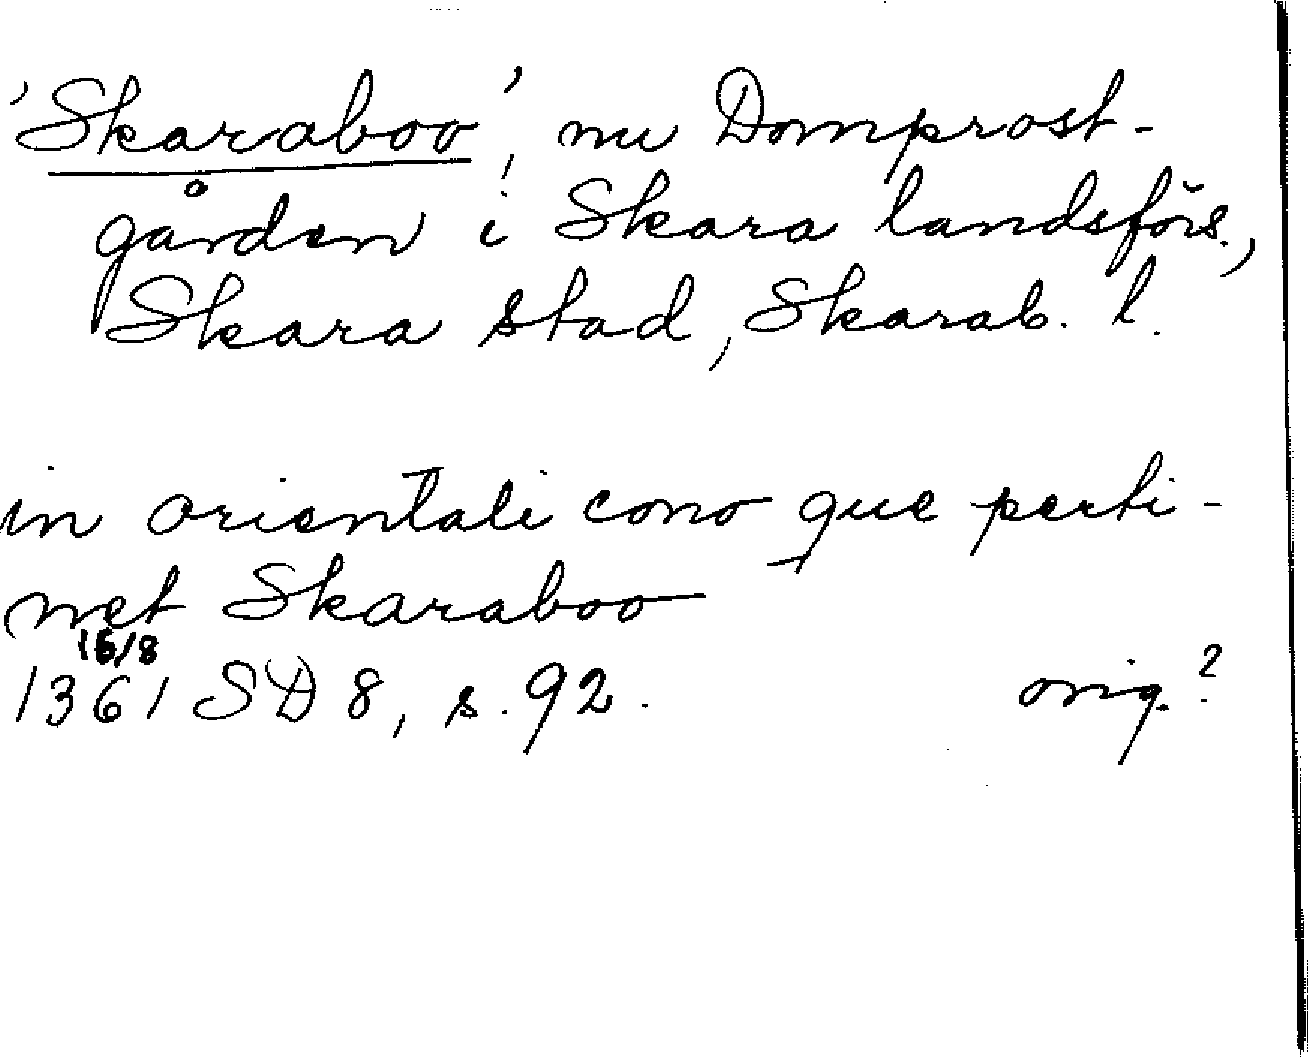 'Skaraboo', nu Domprost-
gården i Skara landsförs.,
Skara stad, Skarab. l.
in orientali cono que perti-
net Skaraboo
15/8
1361 SD 8, s. 92. orig.?